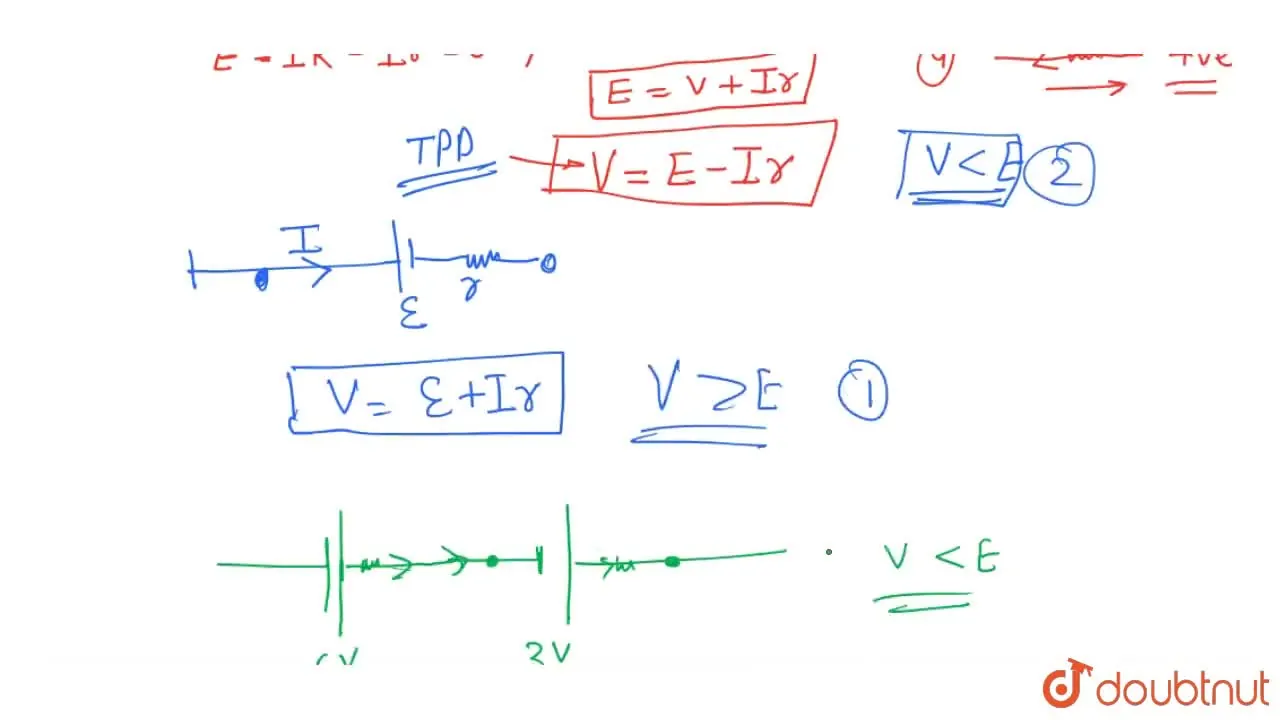 E = V + Ir
+ve
TPD
V = E - Ir
V < E ②
I
r
ε
V = ε + Ir
V > E ①
V < E
3V
doubtnut